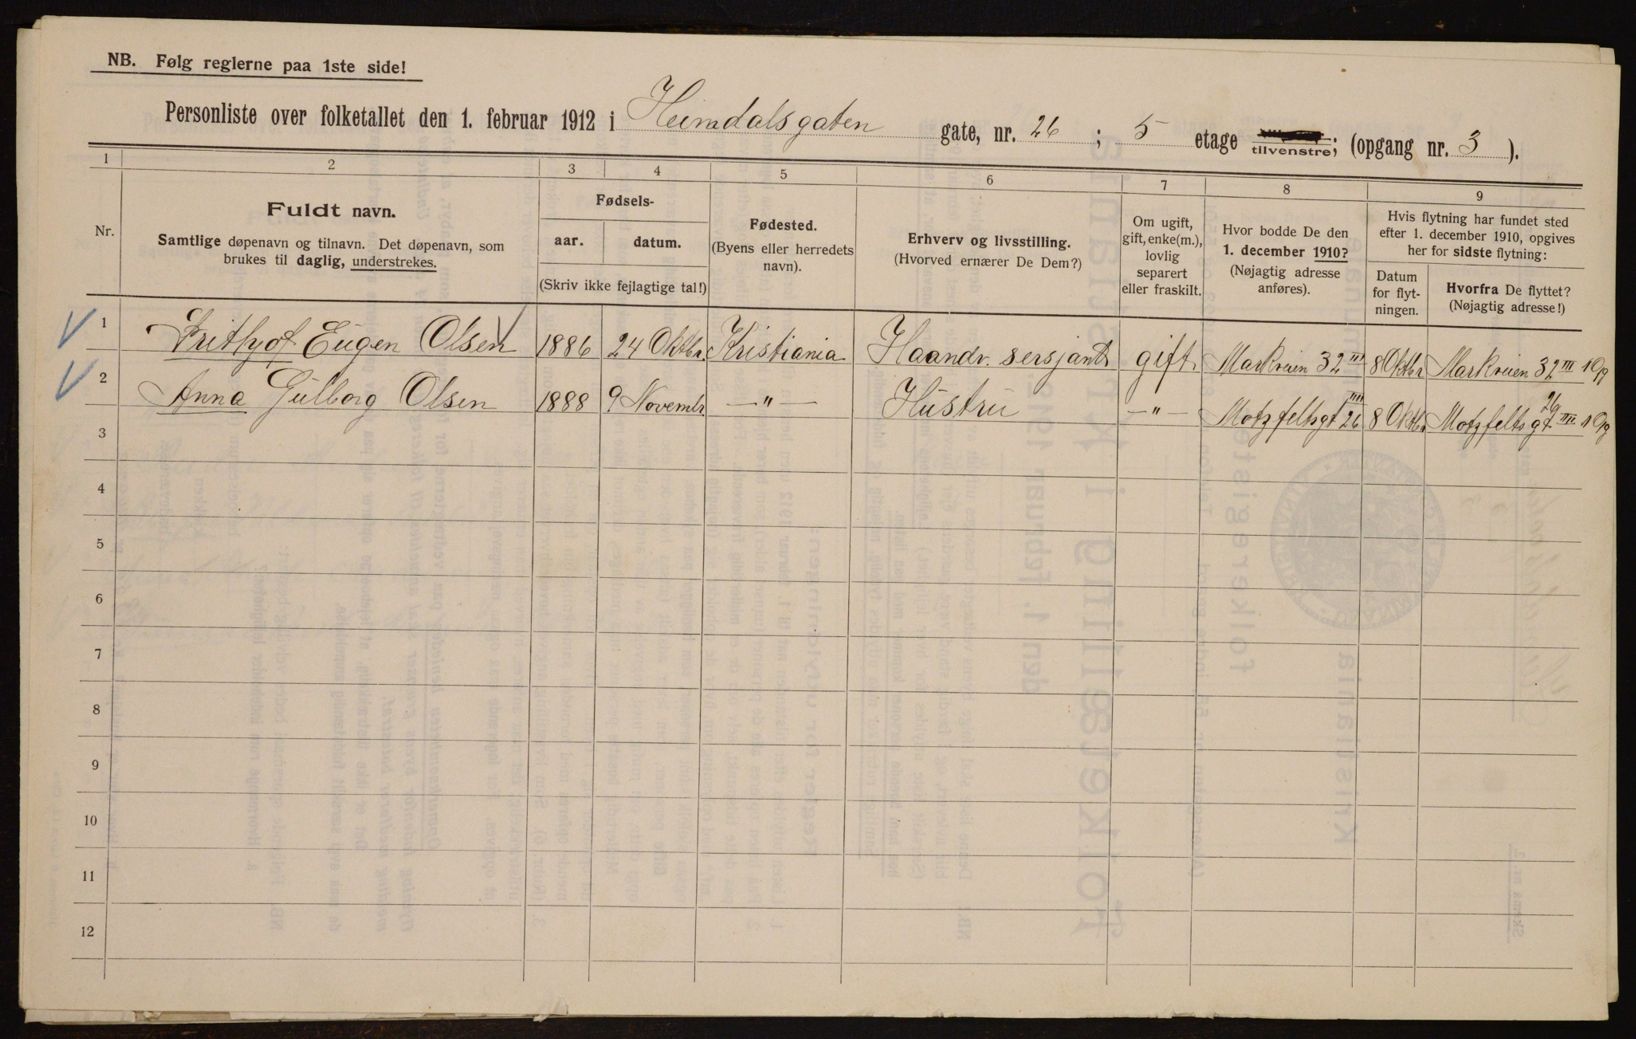 NB. Følg reglerne paa 1ste side!
Personliste over folketallet den 1. februar 1912 i Heimdalsgaten gate, nr. 26 ; 5 etage tilvenstre; (opgang nr. 3 ).
1 2 3 4 5 6 7 8 9
Nr.
Fuldt navn.
Samtlige døpenavn og tilnavn. Det døpenavn, som
brukes til daglig, understrekes.
Fødsels-
aar. datum.
(Skriv ikke fejlagtige tal!)
Fødested.
(Byens eller herredets
navn).
Erhverv og livsstilling.
(Hvorved ernærer De Dem?)
Om ugift,
gift, enke(m.),
lovlig
separert
eller fraskilt.
Hvor bodde De den
1. december 1910?
(Nøjagtig adresse
anføres).
Hvis flytning har fundet sted
efter 1. december 1910, opgives
her for sidste flytning:
Datum
for flyt-
ningen.
Hvorfra De flyttet?
(Nøjagtig adresse!)
1 Frithjof Eugen Olsen 1886 24 Oktbr Kristiania Haandv. sersjant gift. Markveien 32 III 8 Oktbr Markveien 32 III
2 Anna Gulborg Olsen 1888 9 Novembr —"— Hustru —"— Motzfeltsgt 26 III 8 Oktbr Motzfeltsgt. 26 III
3
4
5
6
7
8
9
10
11
12